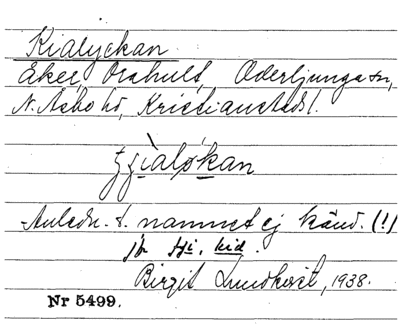 Kialyckan.
Åker, Orahult, Oderljunga sn,
N. Åsbo hd, Kristianstads l.
ʈʂìalø̀kan
Anledn. t. namnet ej känd. (!)
jfr kid.
Birgit Lundkvist, 1938.
Nr 5499.